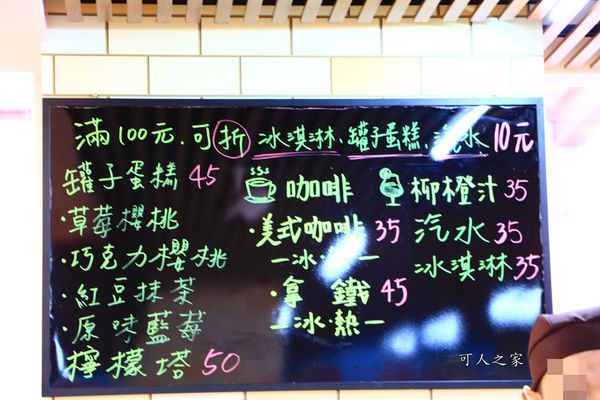 滿100元.可折 冰淇淋.罐子蛋糕.汽水 10元
罐子蛋糕 45
·草莓櫻桃
·巧克力櫻桃
·紅豆抹茶
·原味藍莓
檸檬塔 50
咖啡
·美式咖啡 35
—冰·—
·拿鐵 45
—冰·熱—
柳橙汁 35
汽水 35
冰淇淋 35
可人之家